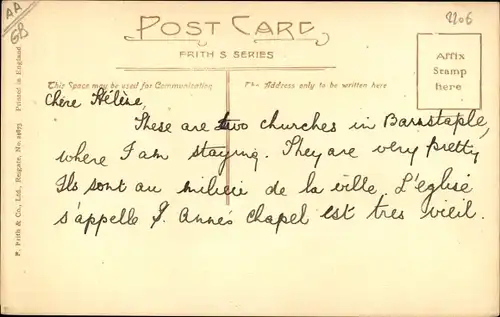 AA
GB
2206
POST CARD
FRITH'S SERIES
Affix
Stamp
here
This Space may be used for Communicating
The Address only to be written here
F. Frith & Co., Ltd., Reigate, No. Printed in England
Chère Hélène,
These are two churches in Barnstaple,
where I am staying. They are very pretty
Ils sont au milieu de la ville. L'église
s'appelle S. Anne's chapel est tres vieil.